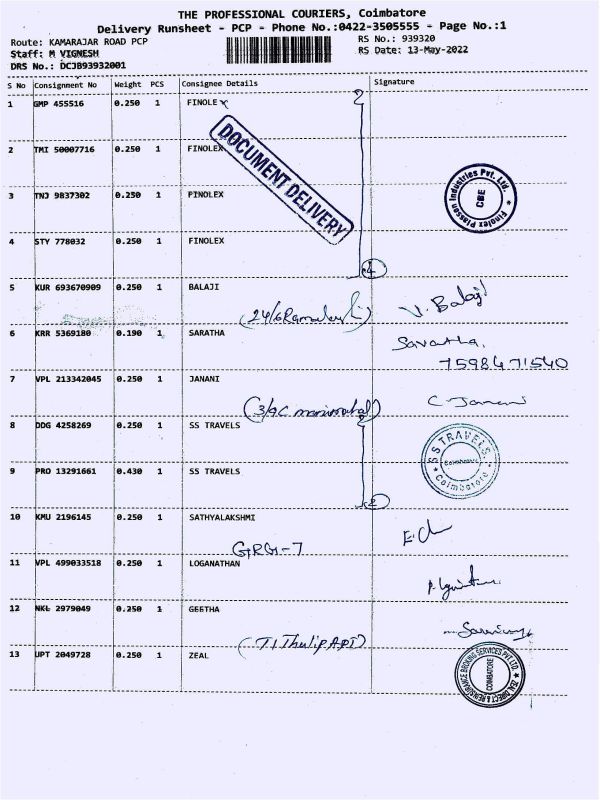 THE PROFESSIONAL COURIERS, Coimbatore
Delivery Runsheet - PCP - Phone No.:0422-3505555 - Page No.:1
Route: KAMARAJAR ROAD PCP
RS No.: 939320
Staff: M VIGNESH
RS Date: 13-May-2022
DRS No.: DCJB93932001
S No Consignment No Weight PCS Consignee Details Signature
1 GMP 455516 0.250 1 FINOLEX
DOCUMENT DELIVERY
2 TMI 50007716 0.250 1 FINOLEX
3 TNJ 9837302 0.250 1 FINOLEX
Finolex Plasson Industries Pvt. Ltd.
CBE
4 STY 778032 0.250 1 FINOLEX
4
5 KUR 693670909 0.250 1 BALAJI
V. Balaji
6 KRR 5369180 0.190 1 SARATHA
Saratha.
7598471540
7 VPL 213342045 0.250 1 JANANI
C Janani
8 DDG 4258269 0.250 1 SS TRAVELS
S S TRAVELS
Coimbatore
Coimbatore
9 PRO 13291661 0.430 1 SS TRAVELS
2
10 KMU 2196145 0.250 1 SATHYALAKSHMI
GRG-7
11 VPL 499033518 0.250 1 LOGANATHAN
12 NKL 2979049 0.250 1 GEETHA
(T1 Thulip APT)
13 UPT 2049728 0.250 1 ZEAL
ZEAL DIRECT & REINSURANCE BROKING SERVICES PVT LTD.
COIMBATORE